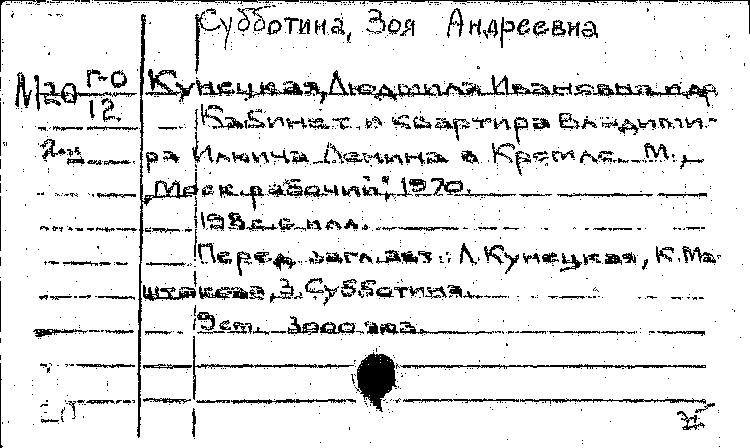 Субботина, Зоя Андреевна
М20 Г-0/12
Кунецкая, Людмила Ивановна и др
Кабинет и квартира Владими-
ра Ильича Ленина в Кремле. М.,
"Моск. рабочий", 1970.
198 с. с илл.
Перед загл. авт.: Л. Кунецкая, К. Ма-
штакова, З. Субботина.
9 ст. 3000 экз.